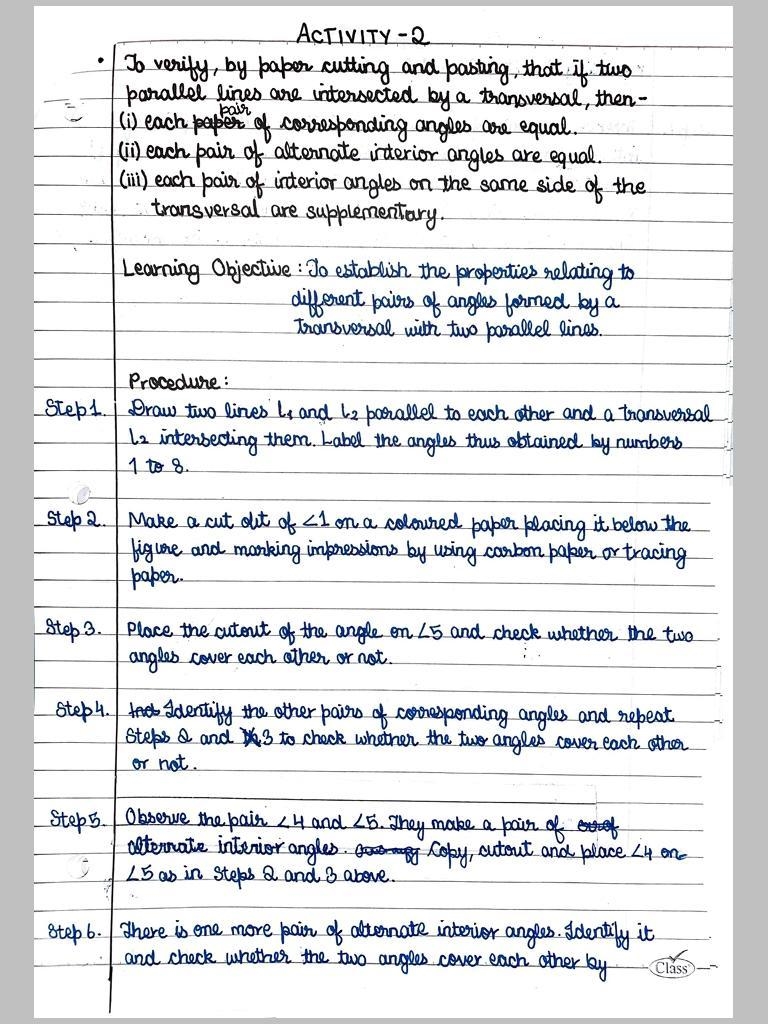 ACTIVITY-2
• To verify, by paper cutting and pasting, that if two
parallel lines are intersected by a transversal, then-
(i) each pair of corresponding angles are equal.
(ii) each pair of alternate interior angles are equal.
(iii) each pair of interior angles on the same side of the
transversal are supplementary.
Learning Objective : To establish the properties relating to
different pairs of angles formed by a
transversal with two parallel lines.
Procedure :
Step 1. Draw two lines l1 and l2 parallel to each other and a transversal
l2 intersecting them. Label the angles thus obtained by numbers
1 to 8.
Step 2. Make a cut out of ∠1 on a coloured paper placing it below the
figure and marking impressions by using carbon paper or tracing
paper.
Step 3. Place the cutout of the angle on ∠5 and check whether the two
angles cover each other or not.
Step 4. Identify the other pairs of corresponding angles and repeat
Steps 2 and 3 to check whether the two angles cover each other
or not.
Step 5. Observe the pair ∠4 and ∠5. They make a pair of
alternate interior angles. Copy, cutout and place ∠4 on
∠5 as in Steps 2 and 3 above.
Step 6. There is one more pair of alternate interior angles. Identify it
and check whether the two angles cover each other by
Class